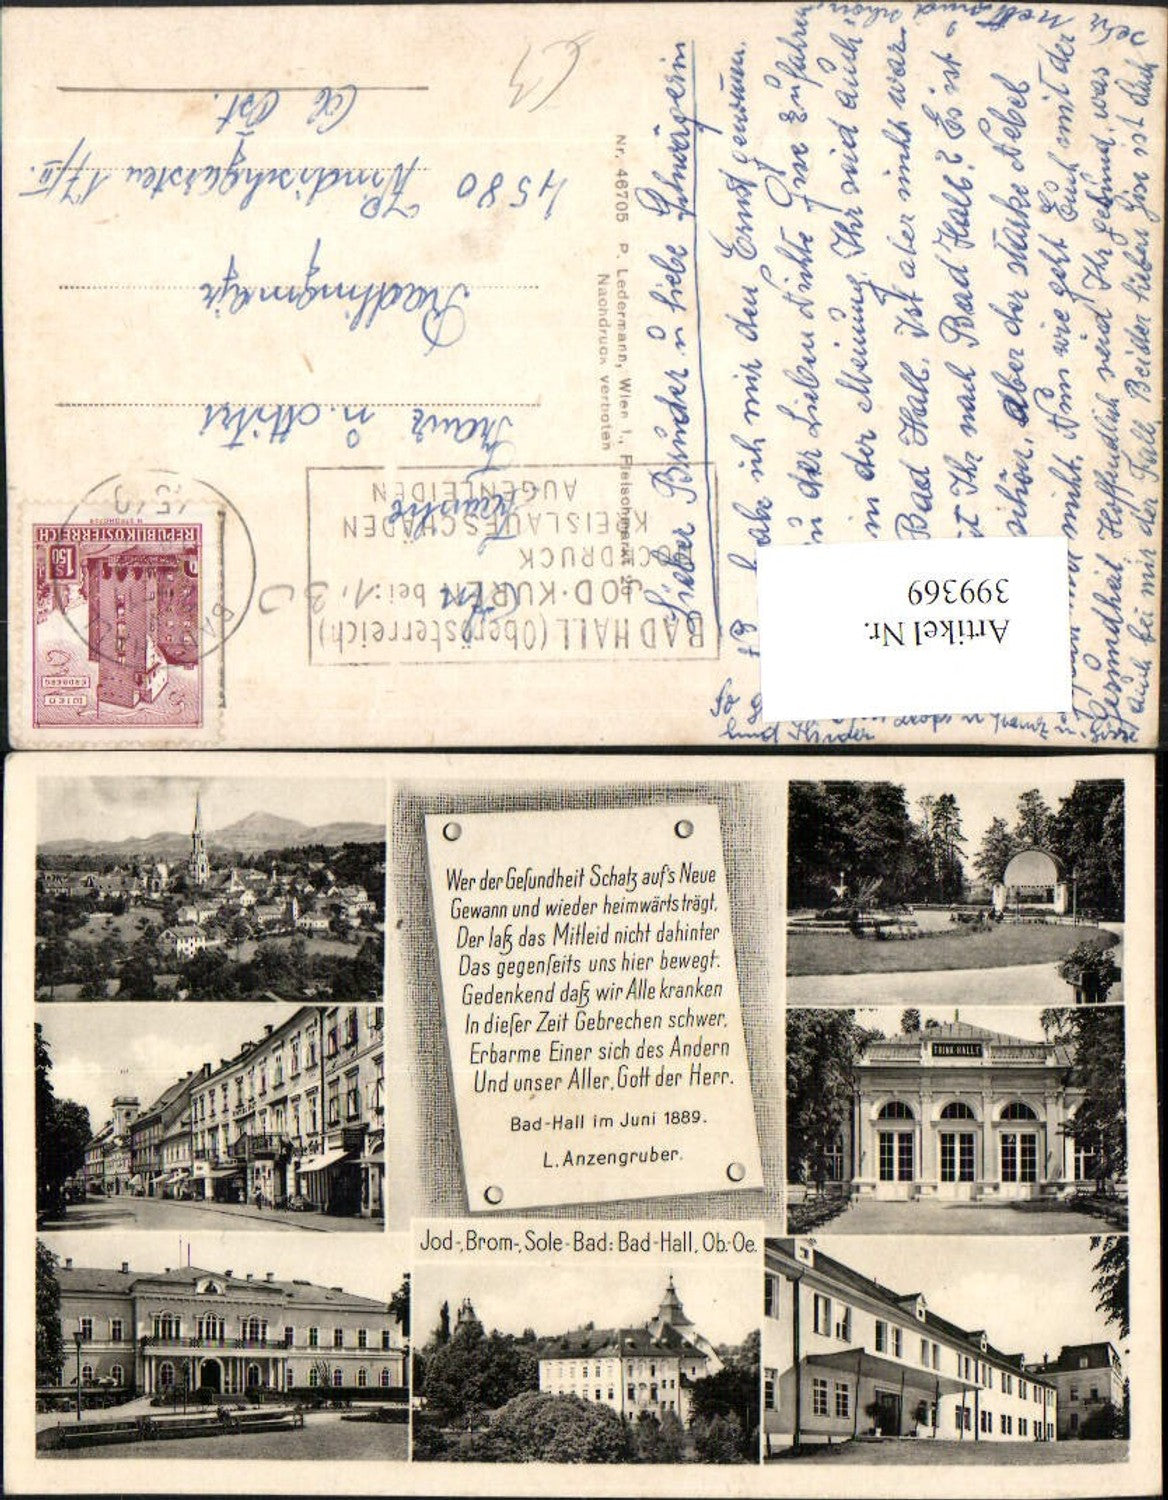 Wer der Geſundheit Schatz auf's Neue
Gewann und wieder heimwärts trägt,
Der laß das Mitleid nicht dahinter
Das gegenſeits uns hier bewegt:
Gedenkend daß wir Alle kranken
In dieſer Zeit Gebrechen schwer,
Erbarme Einer sich des Andern
Und unser Aller, Gott der Herr.
Bad-Hall im Juni 1889.
L. Anzengruber.
Jod-, Brom-, Sole-Bad: Bad-Hall, Ob.-Oe.
TRINK-HALLE
Artikel Nr.
399369
BAD HALL (Oberösterreich)
JOD-KUREN bei:
HOCHDRUCK
KREISLAUFSCHÄDEN
AUGENLEIDEN
WIEN
ERDBERG
REPUBLIK ÖSTERREICH
S 1.50
Nr. 46705 P. Ledermann, Wien I., Fleischmarkt 20
Nachdruck verboten
An
Franz u. Mitzi
4580
Windischgarsten 17/III.
Ob. Öst.
1,30
Lieber Bruder u liebe Schwägerin
hab ich mir den Ernst genommen
der Lieben Nichte Gise zu fahren
in der Meinung, Ihr seid auch
Bad Hall. Ist aber nicht war
Ihr nach Bad Hall? Es ist
schön, aber der starke Nebel
nicht. Nun wie geht Euch mit der
Gesundheit Hoffendlich seid Ihr gesund, was
auch bei mir der Fall. Beider lieben Gise ist auch
sehr nett und schön